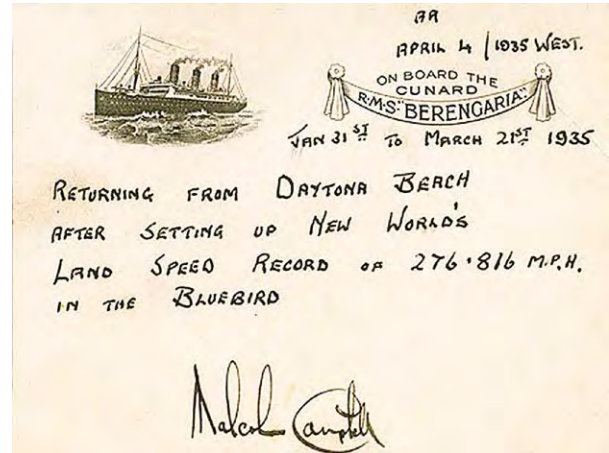 AR
APRIL 4 / 1935 WEST.
ON BOARD THE
CUNARD
R·M·S "BERENGARIA"
JAN 31ST TO MARCH 21ST 1935
RETURNING FROM DAYTONA BEACH
AFTER SETTING UP NEW WORLD'S
LAND SPEED RECORD OF 276·816 M.P.H.
IN THE BLUEBIRD
Malcolm Campbell